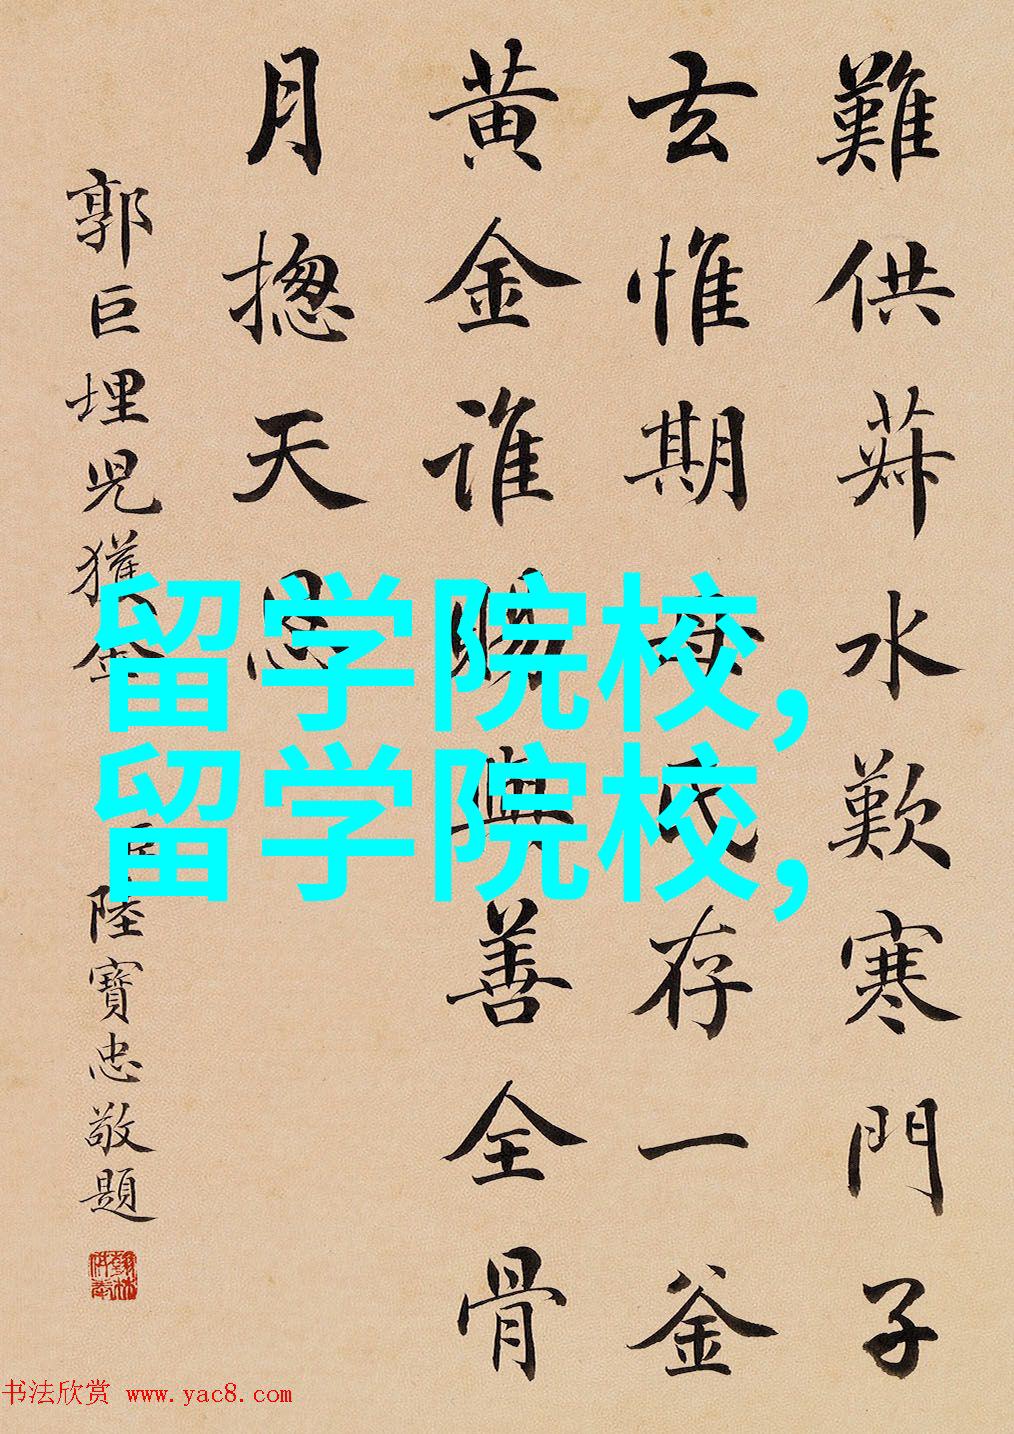 難供菽水歎寒門子
去惟期母氏存一釜
黄金誰賜與善全骨
月揔天恩
郭巨埋兒獲金
臣陸寶忠敬題
翰林供奉
留学院校,
留学院校,
书法欣赏 www.yac8.com